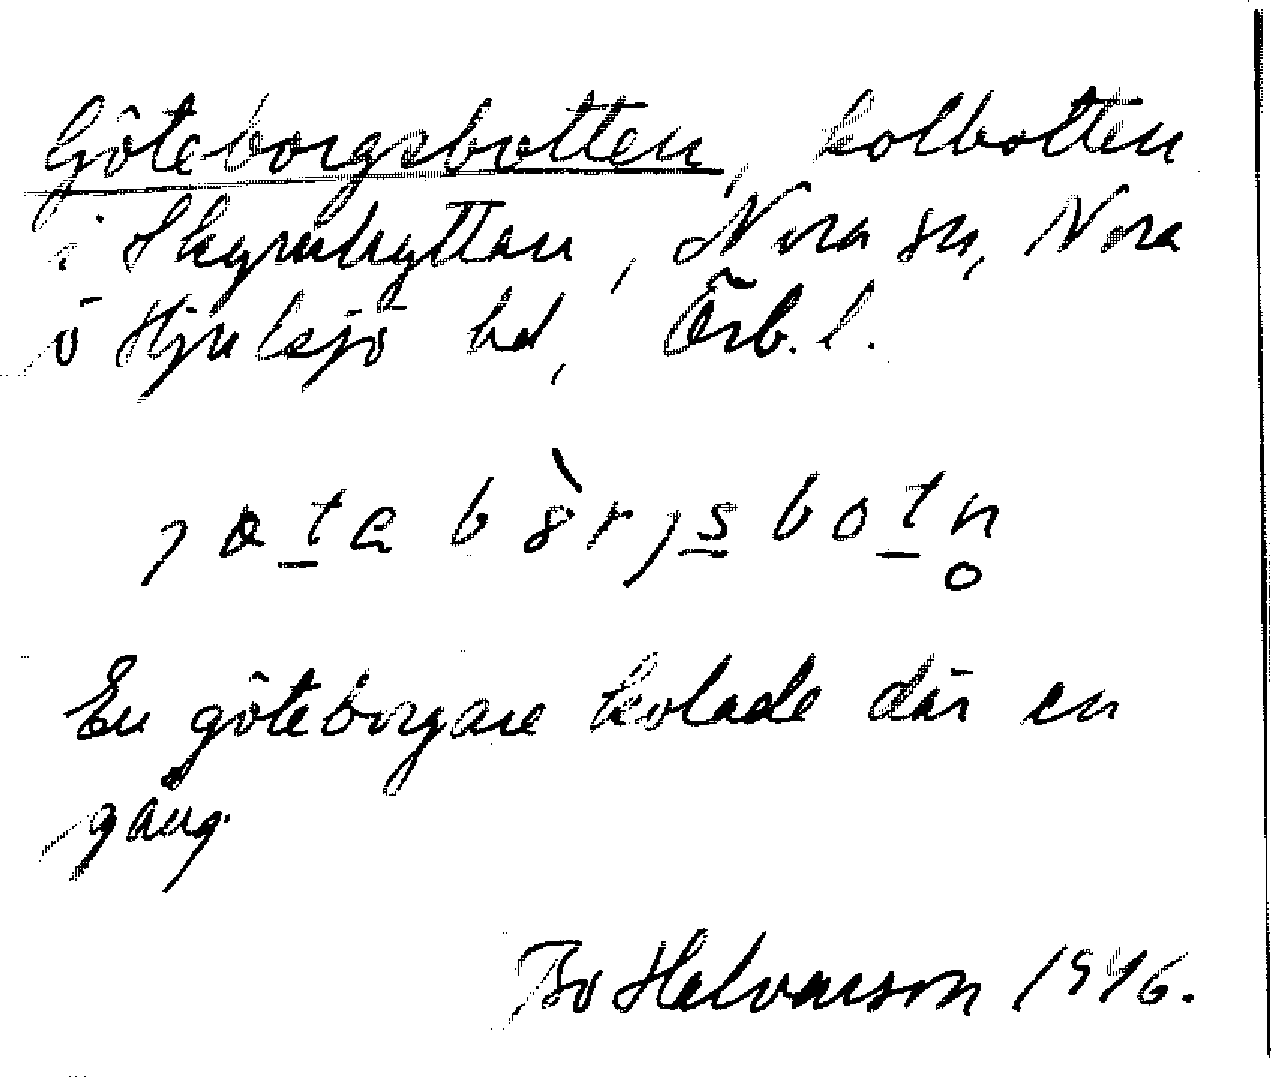 Göteborgsbotten, kolbotten
i Skyrshyttan, Nora sn, Nora
o Hjulsjö hd, Örb. l.
En göteborgare kolade där en
gång.
Bo Halvarson 1946.